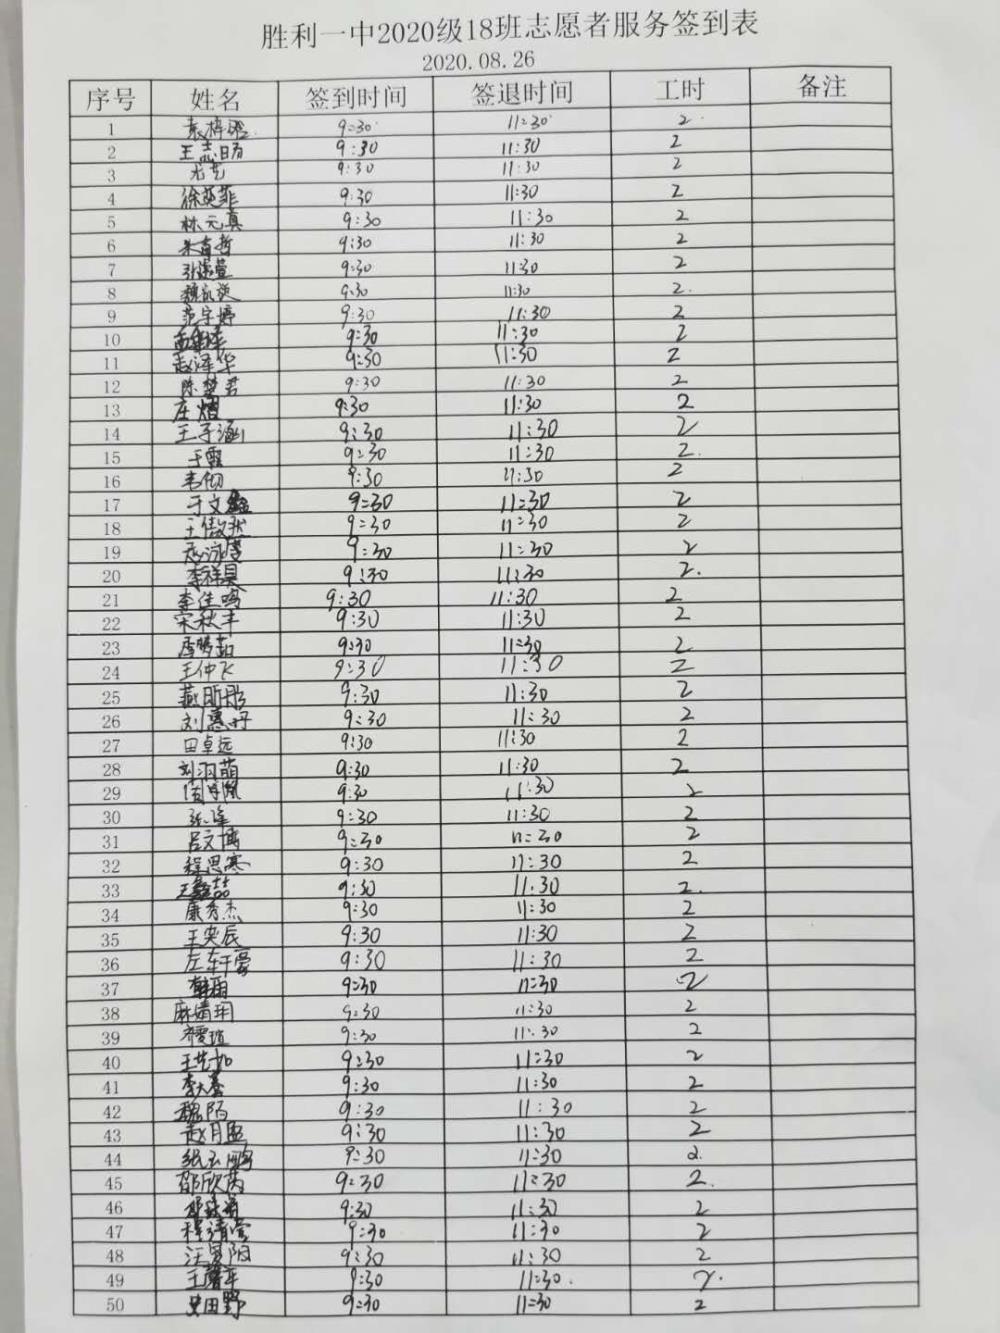 胜利一中2020级18班志愿者服务签到表
2020.08.26
序号 姓名 签到时间 签退时间 工时 备注
1 9:30 11:30 2
2 王志旸 9:30 11:30 2
3 9:30 11:30 2
4 徐英菲 9:30 11:30 2
5 林元真 9:30 11:30 2
6 朱育哲 9:30 11:30 2
7 9:30 11:30 2
8 9:30 11:30 2
9 范宇婷 9:30 11:30 2
10 9:30 11:30 2
11 赵泽华 9:30 11:30 2
12 陈楚君 9:30 11:30 2
13 庄熠 9:30 11:30 2
14 王子涵 9:30 11:30 2
15 于霞 9:30 11:30 2
16 9:30 11:30 2
17 于文鑫 9:30 11:30 2
18 王傲然 9:30 11:30 2
19 9:30 11:30 2
20 李祥昊 9:30 11:30 2
21 李佳鸣 9:30 11:30 2
22 宋秋丰 9:30 11:30 2
23 9:30 11:30 2
24 王仲飞 9:30 11:30 2
25 燕昕彤 9:30 11:30 2
26 刘惠好 9:30 11:30 2
27 田卓远 9:30 11:30 2
28 刘羽萌 9:30 11:30 2
29 9:30 11:30 2
30 9:30 11:30 2
31 吕文博 9:30 11:30 2
32 程思寒 9:30 11:30 2
33 王鑫喆 9:30 11:30 2
34 康秀杰 9:30 11:30 2
35 王奕辰 9:30 11:30 2
36 左轩豪 9:30 11:30 2
37 韩雨 9:30 11:30 2
38 麻婧玥 9:30 11:30 2
39 9:30 11:30 2
40 王艺如 9:30 11:30 2
41 9:30 11:30 2
42 魏陌 9:30 11:30 2
43 赵月盈 9:30 11:30 2
44 张玉鹏 9:30 11:30 2
45 邵欣芮 9:30 11:30 2
46 9:30 11:30 2
47 程清莹 9:30 11:30 2
48 汪昊阳 9:30 11:30 2
49 9:30 11:30 2
50 史田野 9:30 11:30 2